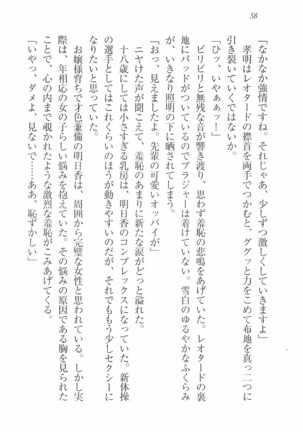 38
「なかなか強情ですね。それじゃあ、少しずつ激しくしていきますよ」
孝明はレオタードの襟首を両手でつかむと、ググッと力をこめて布地を真っ二つに
引き裂いていくではないか。
「ひッ、いやぁぁッ！」
ビリビリと無残な音が響き渡り、思わず羞恥の悲鳴をあげていた。レオタードの裏
地にパッドがついているのでブラジャーは着けていない。雪白のゆるやかなふくらみ
が、いきなり照明の下に晒されてしまう。
「おっ、見えましたよ。先輩の可愛いオッパイが」
ニヤけた声が聞こえて、羞恥のあまりに新たな涙がどっと溢れた。
十八歳にしては小さすぎる乳房は、明日香のコンプレックスになっていた。新体操
の選手としてはこれくらいのほうが動きやすいのだが、それでももう少しセクシーに
なりたいと思っていた。
お嬢様育ちで才色兼備の明日香は、周囲から完璧な女性と思われている。しかし実
際は、年相応の女の子らしい悩みを抱えていた。その悩みの原因である胸を見られた
ことで、心の内まで覗かれたような激烈な羞恥がこみあげてくる。
「いやっ、ダメよ、見ないで……ああ、恥ずかしい」